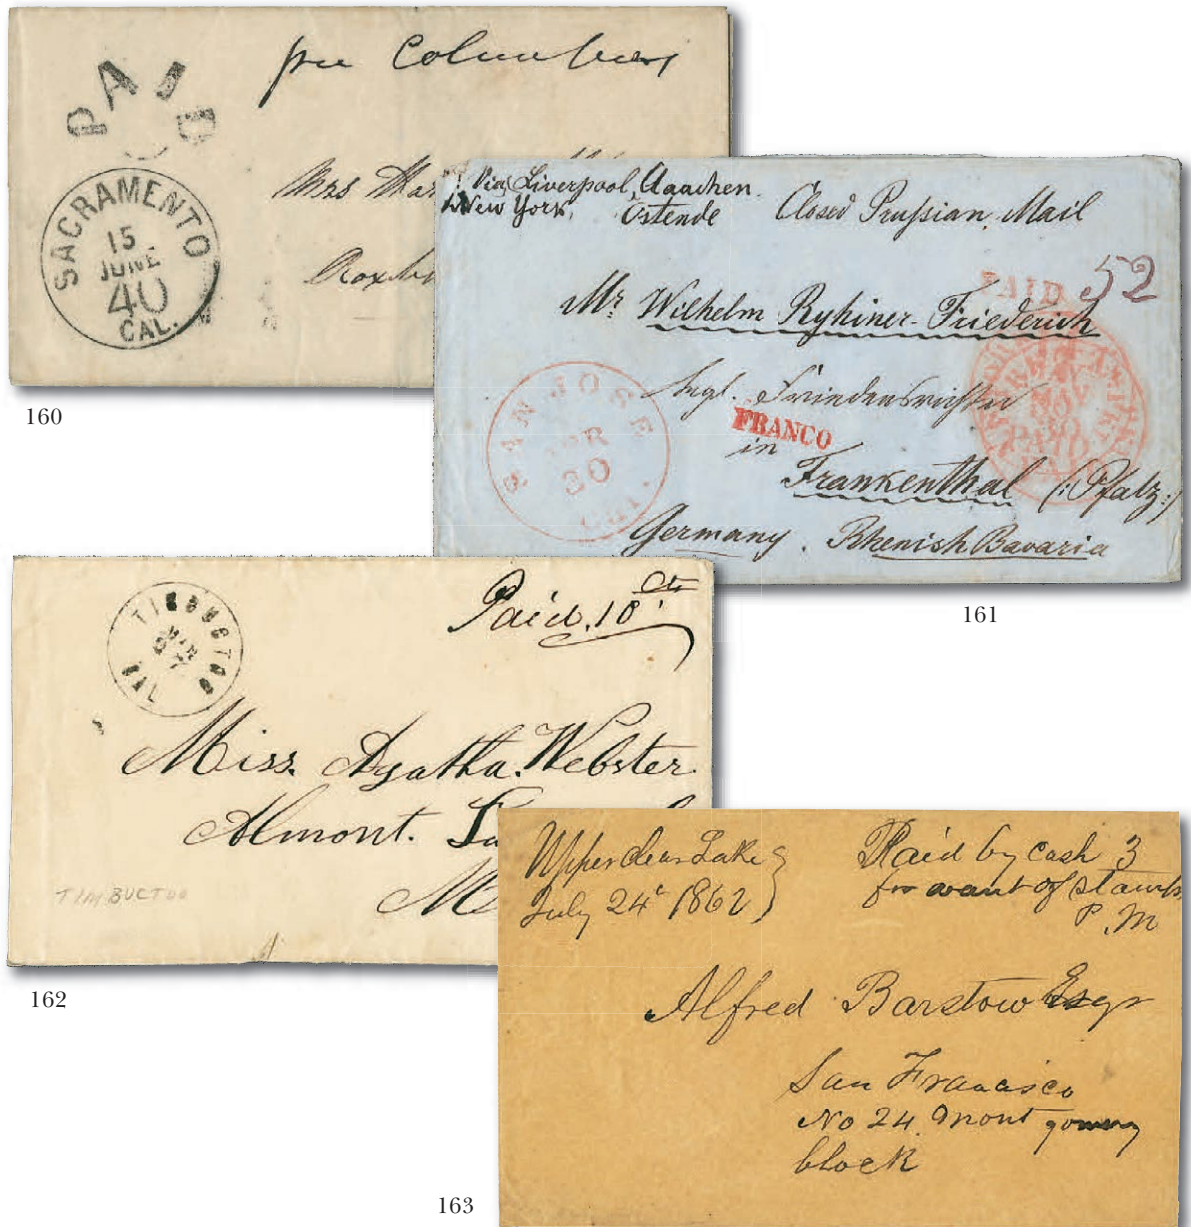 PAID
per Columbus
SACRAMENTO
15
JUNE
40
CAL.
Mrs
160
Via Liverpool, Aachen.
New York, Ostende Closed Prussian, Mail
PAID 52
Mr. Wilhelm Ryhiner-Friederich
SAN JOSE
30
CAL.
FRANCO
in
Frankenthal (:Pfalz:)
Germany. Rhenish Bavaria
161
TIMBUCTOO
MAR
27
CAL
Paid. 10 cts
Miss. Agatha. Webster.
Almont.
TIMBUCTOO
162
Upper Clear Lake
July 24t 1862
Paid by cash 3
for want of stamps
P. M
Alfred Barstow Esqr
San Francisco
No 24 Montgomery
block
163